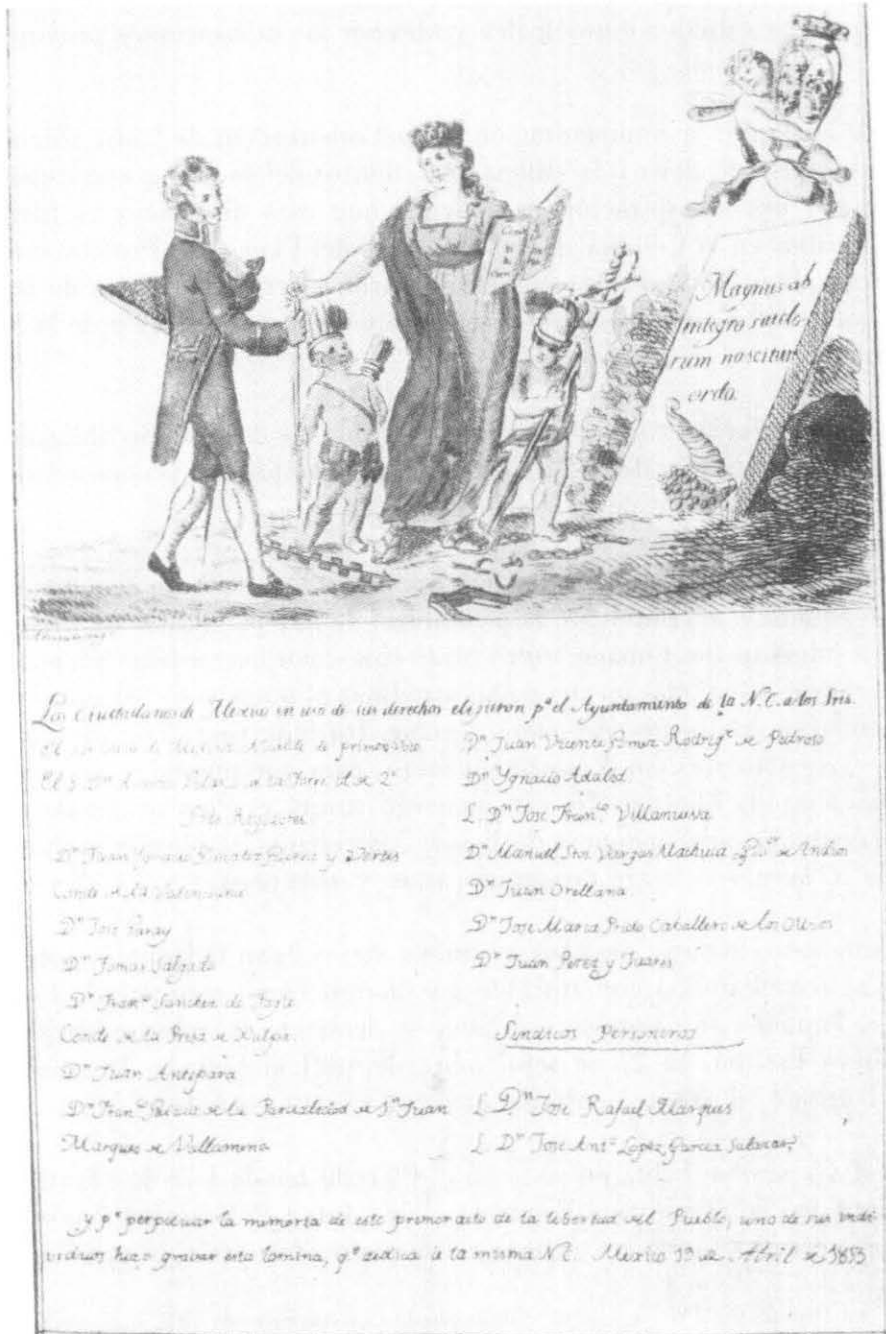 Magnus ab
integro saeclo-
rum nascitur
ordo.
Los Ciudadanos de Mexico en uso de sus derechos elijieron pª el Ayuntamiento de la N.C. a los Sres.
El de Alcalde de primer voto
El de la Torre de 2º
Sres. Regidores
Dⁿ Juan Ignacio Gonzalez y Vertes
Conde de la Valenciana
Dⁿ José Garay
Dⁿ Tomas Salgado
Dⁿ Franᶜᵒ Sanchez de Tagle
Conde de la Presa de Xalpa
Dⁿ Juan Antepara
Dⁿ Franᶜᵒ de la Parcialidad de Sⁿ Juan
Marques de Vallamena
Dⁿ Juan Vicente Gomez Rodrigᶻ de Pedroso
Dⁿ Ygnacio Adalid
L. Dⁿ José Franᶜᵒ Villanueva
Dⁿ Manuel Machuca de Indios
Dⁿ Juan Orellana
Dⁿ José Maria Prieto Caballero de los Olivos
Dⁿ Juan Perez y Juares
Sindicos Personeros
L. Dⁿ José Rafael Marques
L. Dⁿ José Antº Lopez Garcia Salazar
y pª perpetuar la memoria de este primer acto de la libertad del Pueblo, uno de sus indi-
viduos hizo gravar esta lamina, qᵉ dedica à la misma N.C. Mexico 19 de Abril de 1813